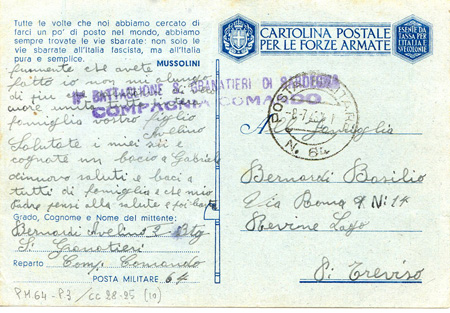 Tutte le volte che noi abbiamo cercato di
farci un po' di posto nel mondo, abbiamo
sempre trovate le vie sbarrate: non solo le
vie sbarrate all'Italia fascista, ma all'Italia
pura e semplice.
MUSSOLINI
che avete
fatto io non mi
di più
famiglia vostro figlio
Avelino
Salutate i miei zii e
cognate un bacio a Gabriele
di nuovo saluti e baci a
tutti di famiglia e che mio
Padre pensi alla salute e poi basta
Grado, Cognome e Nome del mittente:
Bernardi Avelino 2º Btg
Sº Granatieri
Reparto Comp. Comando
POSTA MILITARE 64
PM 64 - P3 / CC 28-25 (10)
BATTAGLIONE S. GRANATIERI DI SARDEGNA
COMPAGNIA COMANDO
CARTOLINA POSTALE
PER LE FORZE ARMATE
ESENTE DA
TASSA PER
L'ITALIA E
SUE COLONIE
POSTA MILITARE
N. 64
Alla famiglia
Bernardi Basilio
Via Roma Nº 14
Revine Lago
Treviso